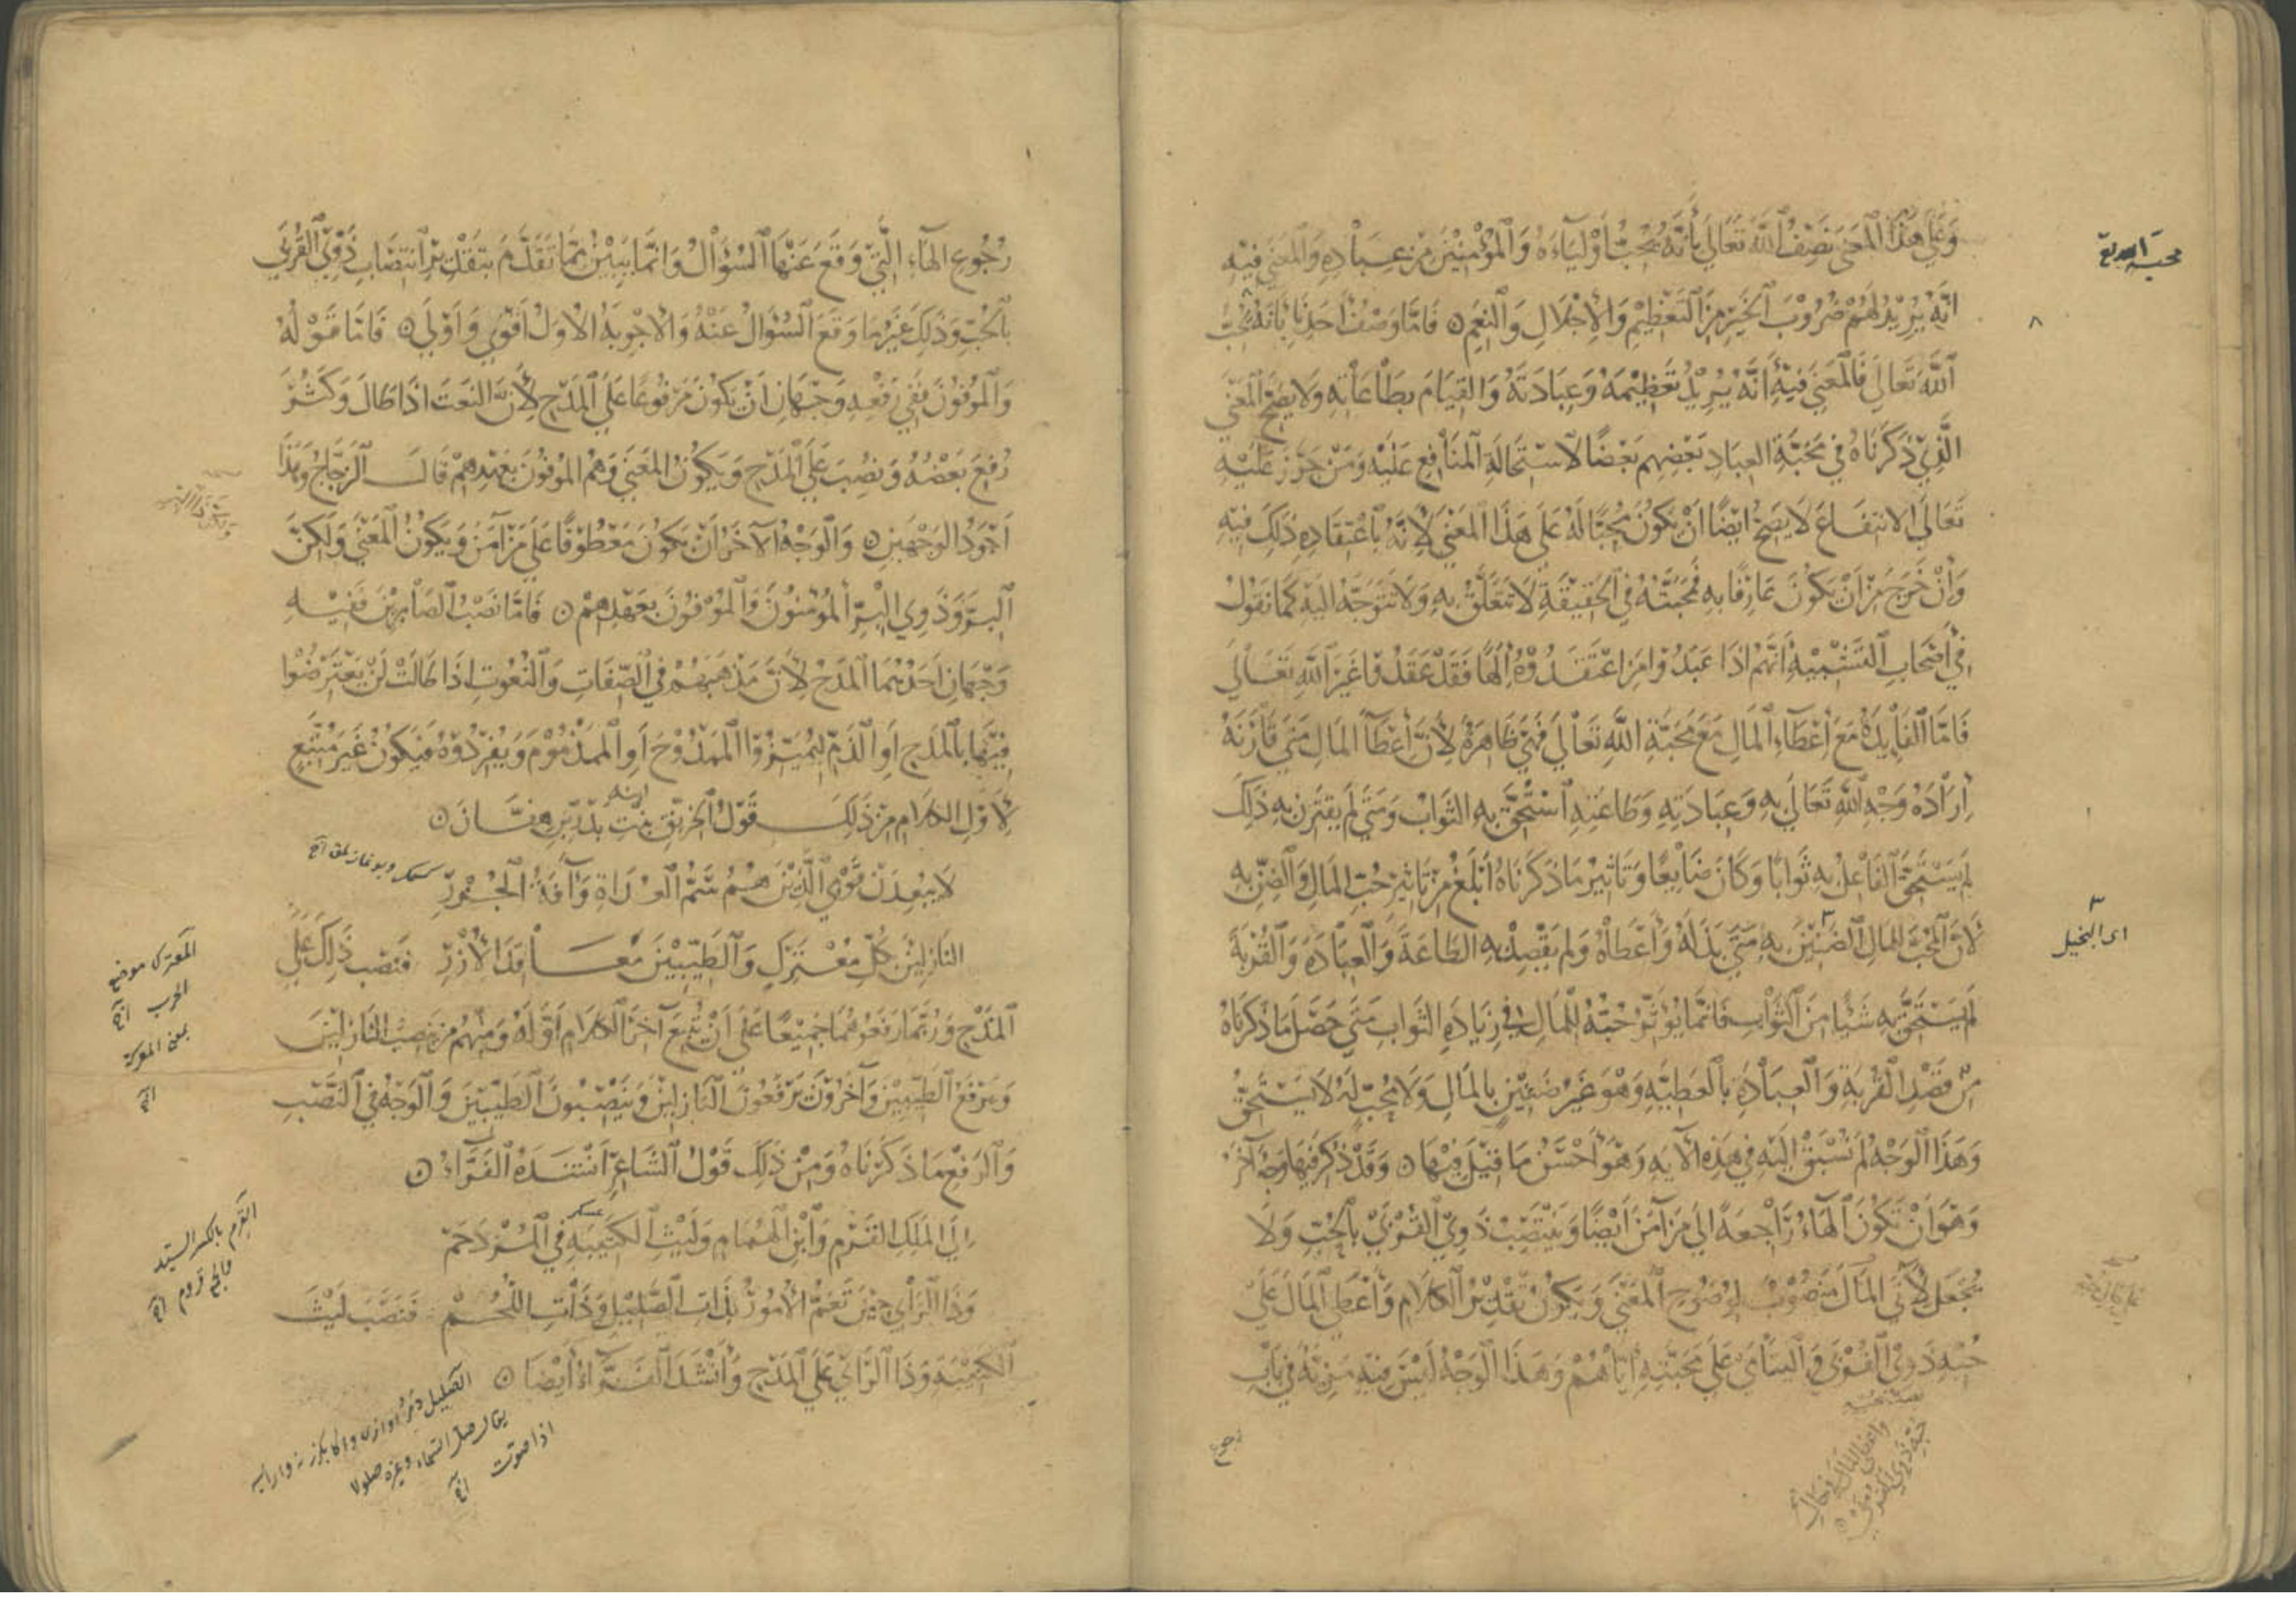 وَعَلى هٰذَا الْمَعنى نَصِفُ اللّٰهَ تَعَالى بِأَنَّهُ يُحِبُّ أَوْلِيَآءَهُ وَالْمُؤْمِنِيْنَ مِنْ عِبَادِهِ وَالْمَعْنى فِيْهِ
اَنَّهُ يُرِيْدُ لَهُمْ ضُرُوْبَ الْخَيْرِ مِنَ التَّعْظِيْمِ وَالْاِجْلَالِ وَالنِّعَمِ ۞ فَامَّا وَصْفُ اَحَدِنَا بِاَنَّهُ يُحِبُّ
اللّٰهَ تَعَالى فَالْمَعْنى فِيْهِ اَنَّهُ يُرِيْدُ تَعْظِيْمَهُ وَعِبَادَتَهُ وَالْقِيَامَ بِطَاعَاتِهِ وَلَا يَصِحُّ الْمَعْنى
الَّذِيْ ذَكَرْنَاهُ فِي مَحَبَّةِ العِبَادِ بَعْضِهِم بَعْضًا لِاسْتِحَالَةِ الْمَنَافِعِ عَلَيْهِ وَمَنْ جَوَّزَ عَلَيْهِ
تَعَالَى الانتِفَاعَ لَا يَصِحُّ ايْضًا اَنْ يَكُوْنَ مُحِبًّا لَهُ عَلى هَذَا الْمَعْنى لِاَنَّهُ بِاعْتِقَادِهِ ذَلِكَ فِيْهِ
وَاَنْ خَرَجَ مِنْ اَنْ يَكُوْنَ عَارِفًا بِهِ فَمَحَبَّتُهُ فِي الْحَقِيْقَةِ لَا تَتَعَلَّقُ بِهِ وَلَا تَتَوَجَّهُ اليْهِ كَمَا نَقُوْلُ
فِي أَصْحَابِ التَّشْبِيْهِ اَنَّهُمْ اذَا عَبَدُوْا مَنِ اعْتَقَدُوْهُ اِلٰهًا فَقَدْ عَبَدُوْا غَيْرَ اللّٰهِ تَعَالى
فَامَّا الْفَايِدَةُ مَعَ اِعْطَآءِ الْمَالِ مَعَ مَحَبَّةِ اللّٰهِ تَعَالى فَهِيَ ظَاهِرَةٌ لِاَنَّ اِعْطَآءَ المَالِ مَتى قَارَنَهُ
اِرَادَةُ وَجْهِ اللّٰهِ تَعَالى بِهِ وَعِبَادَتِهِ وَطَاعَتِهِ اسْتُحِقَّ بِهِ الثَّوَابُ وَمَتى لَم يَقْتَرِن بِهِ ذَلِكَ
لَم يَسْتَحِقَّ الْفَاعِلُ بِهِ ثَوَابًا وَكَانَ ضَايِعًا وَتَاثِيْرُ مَا ذَكَرْنَاهُ اَبْلَغُ مِنْ تَاثِيْرِ حُبِّ المَالِ وَالضَّنِّ بِهِ
لِاَنَّ الْمُحِبَّ لِلمَالِ الضَّنِيْنَ بِهِ مَتى بَذَلَهُ وَأَعْطَاهُ وَلَمْ يَقْصِدْ بِهِ الطَّاعَةَ وَالْعِبَادَةَ وَالْقُرْبَةَ
لَم يَسْتَحِقَّ بِهِ شَيْئًا مِنَ الثَّوَابِ فَاِنَّمَا يُؤَثِّرُ حُبُّهُ لِلْمَالِ فِي زِيَادَةِ الثَّوَابِ مَتى حَصَلَ مَا ذَكَرْنَاهُ
مِنْ قَصْدِ القُرْبَةِ وَالْعِبَادَةِ بِالْعَطِيَّةِ وَهُوَ غَيْرُ ضَنِيْنٍ بِالْمَالِ وَلَا مُحِبٍّ لَهُ لَا يَسْتَحِقُّ
وَهَذَا الْوَجْهُ لَم نُسْبَقْ اِلَيْهِ فِي هَذِهِ الآيَةِ وَهُوَ أَحْسَنُ مَا قِيْلَ فِيْهَا ۞ وَقَدْ ذُكِرَ فِيْهَا وَجْهٌ آخَرُ
وَهُوَ اَنْ تَكُوْنَ الْهَاءُ رَاجِعَةً الى مَنْ آمَنَ اَيْضًا وَيَنْتَصِبُ ذَوِي الْقُرْبى بِالْحُبِّ وَلَا
يُجْعَلُ لِاٰتَى المَالَ مَنْصُوْبٌ لِوُضُوْحِ الْمَعْنى وَيَكُوْنُ تَقْدِيْرُ الْكَلَامِ وَاَعْطَى الْمَالَ عَلى
حُبِّهِ ذَوِي الْقُرْبى وَاليَتَامى عَلى مَحَبَّتِهِ اِيَّاهُمْ وَهَذَا الْوَجْهُ لَيْسَ فِيْهِ مَزِيَّةٌ فِي بَابِ
رجوع
محبة الله تع
اى البخيل
رُجُوْعِ الْهَآءِ الَّتِيْ وَقَعَ عَنْهَا السُّؤَالُ وَاِنَّمَا يَتَبَيَّنُ مِمَّا تَقَدَّمَ بِتَقْدِيْرِ انْتِصَابِ ذَوِي الْقُرْبى
بِالْحُبِّ وَذَلِكَ غَيْرُ مَا وَقَعَ السُّؤَالُ عَنْهُ وَالْاَجْوِبَةُ الاُوَلُ اَقْوى وَاَوْلى ۞ فَامَّا قَوْلُهُ
وَالْمُوْفُوْنَ فَفِي رَفْعِهِ وَجْهَانِ اَنْ يَكُوْنَ مَرْفُوْعًا عَلَى الْمَدْحِ لِاَنَّ النَّعْتَ اذَا طَالَ وَكَثُرَ
رُفِعَ بَعْضُهُ وَنُصِبَ عَلَى الْمَدْحِ وَيَكُوْنُ المَعْنى وَهُمُ الْمُوْفُوْنَ بِعَهْدِهِمْ قَالَ الزَّجَّاجُ وَهَذَا
اَجْوَدُ الْوَجْهَيْنِ ۞ وَالْوَجْهُ الآخَرُ اَنْ يَكُوْنَ مَعْطُوْفًا عَلى مَنْ آمَنَ وَيَكُوْنُ الْمَعْنى وَلَكِنَّ
الْبِرَّ وَذَوِي الْبِرِّ الْمُؤْمِنُوْنَ وَالْمُوْفُوْنَ بِعَهْدِهِمْ ۞ فَامَّا نَصْبُ الصَّابِرِيْنَ فَفِيْهِ
وَجْهَانِ اَحَدُهُمَا الْمَدْحُ لِاَنَّ مَذْهَبَهُمْ فِي الصِّفَاتِ وَالنُّعُوْتِ اِذَا طَالَتْ اَنْ يَعْتَرِضُوْا
فِيْهَا بِالْمَدْحِ اَوِ الذَّمِّ لِيُمَيِّزُوا الْمَمْدُوْحَ اَوِ الْمَذْمُوْمَ وَيُفْرِدُوْهُ فَيَكُوْنُ غَيْرَ مُتَّبِعٍ
لِاَوَّلِ الْكَلَامِ مِنْ ذَلِكَ قَوْلُ الْخِرْنِقِ بِنْتِ بَدْرِ بْنِ هِفَّانَ ۞
لَا يَبْعَدَنْ قَوْمِي الَّذِيْنَ هُمُ سَمُّ الْعُدَاةِ وَآفَةُ الْجُزْرِ
النَّازِلِيْنَ بِكُلِّ مُعْتَرَكٍ وَالطَّيِّبِيْنَ مَعَاقِدَ الْاُزْرِ فَنَصَبَ ذَلِكَ عَلَى
الْمَدْحِ وَرُبَّمَا رَفَعُوْهُمَا جَمِيْعًا عَلى اَنْ يُتْبَعَ آخِرُ الْكَلَامِ اَوَّلَهُ وَمِنْهُم مَنْ يَنْصِبُ النَّازِلِيْنَ
وَيَرْفَعُ الطَّيِّبِيْنَ وَآخَرُوْنَ يَرْفَعُوْنَ النَّازِلِيْنَ وَيَنْصِبُوْنَ الطَّيِّبِيْنَ وَالْوَجْهُ فِي النَّصْبِ
وَالرَّفْعِ مَا ذَكَرْنَاهُ وَمِنْ ذَلِكَ قَوْلُ الشَّاعِرِ اَنْشَدَهُ الْفَرَّاءُ ۞
اِلَى الْمَلِكِ الْقَرْمِ وَابْنِ الْهُمَامِ وَلَيْثِ الْكَتِيْبَةِ فِي الْمُزْدَحَمْ
وَذَا الرَّأْيِ حِيْنَ تُغَمُّ الْاُمُوْرُ بِذَاتِ الصَّلِيْلِ وَذَاتِ اللُّجُمْ فَنَصَبَ لَيْثَ
الْكَتِيْبَةِ وَذَا الرَّأْيِ عَلَى الْمَدْحِ وَأَنْشَدَ الْفَرَّاءُ أَيْضًا ۞
عسكر
المعترك موضع
الحرب
بمعنى المعركة
القرم بالكسر السيد
يقال صل
اذا صوت